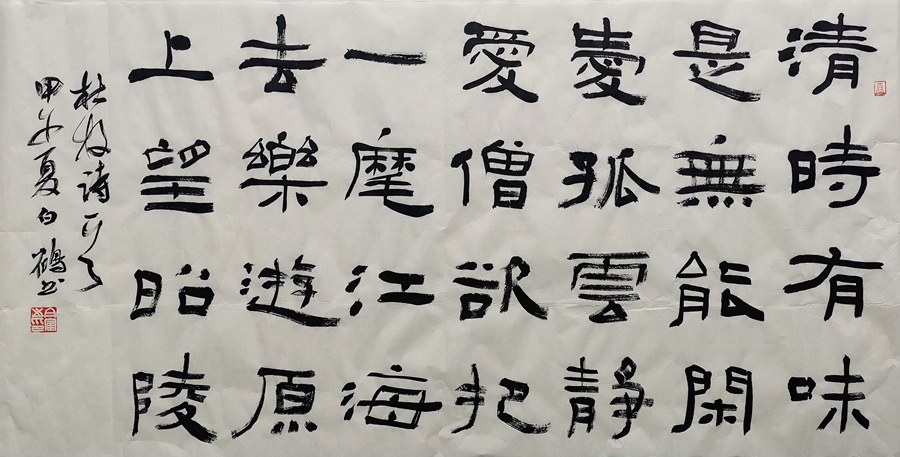 清時有味
是無能閑
愛孤雲靜
愛僧欲把
一麾江海
去樂遊原
上望昭陵
杜牧诗一首
甲午夏白鶴书